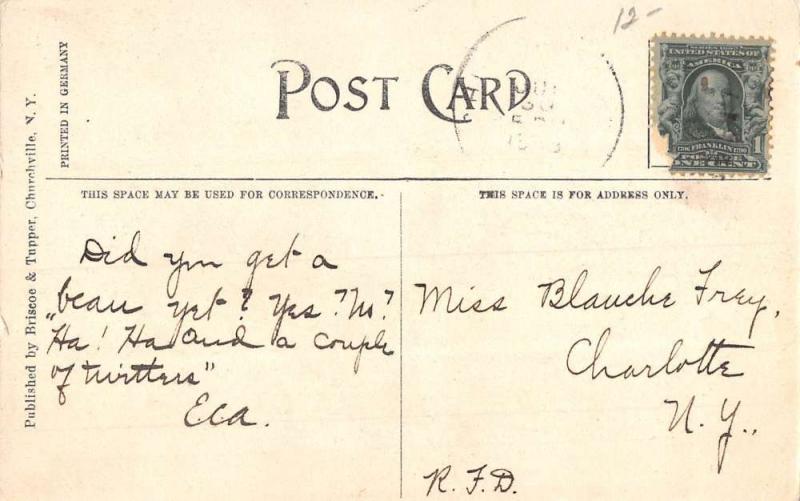 12-
POST CARD
PRINTED IN GERMANY
Published by Briscoe & Tupper, Churchville, N. Y.
SERIES 1902
UNITED STATES OF
AMERICA
1706 FRANKLIN 1790
POSTAGE 1
ONE CENT
THIS SPACE MAY BE USED FOR CORRESPONDENCE.
THIS SPACE IS FOR ADDRESS ONLY.
Did you get a
„beau yet? Yes? No?
Ha! Ha and a couple
of twitters"
Eca.
Miss Blanche Frey,
Charlotte
N. Y.,
R. F. D.